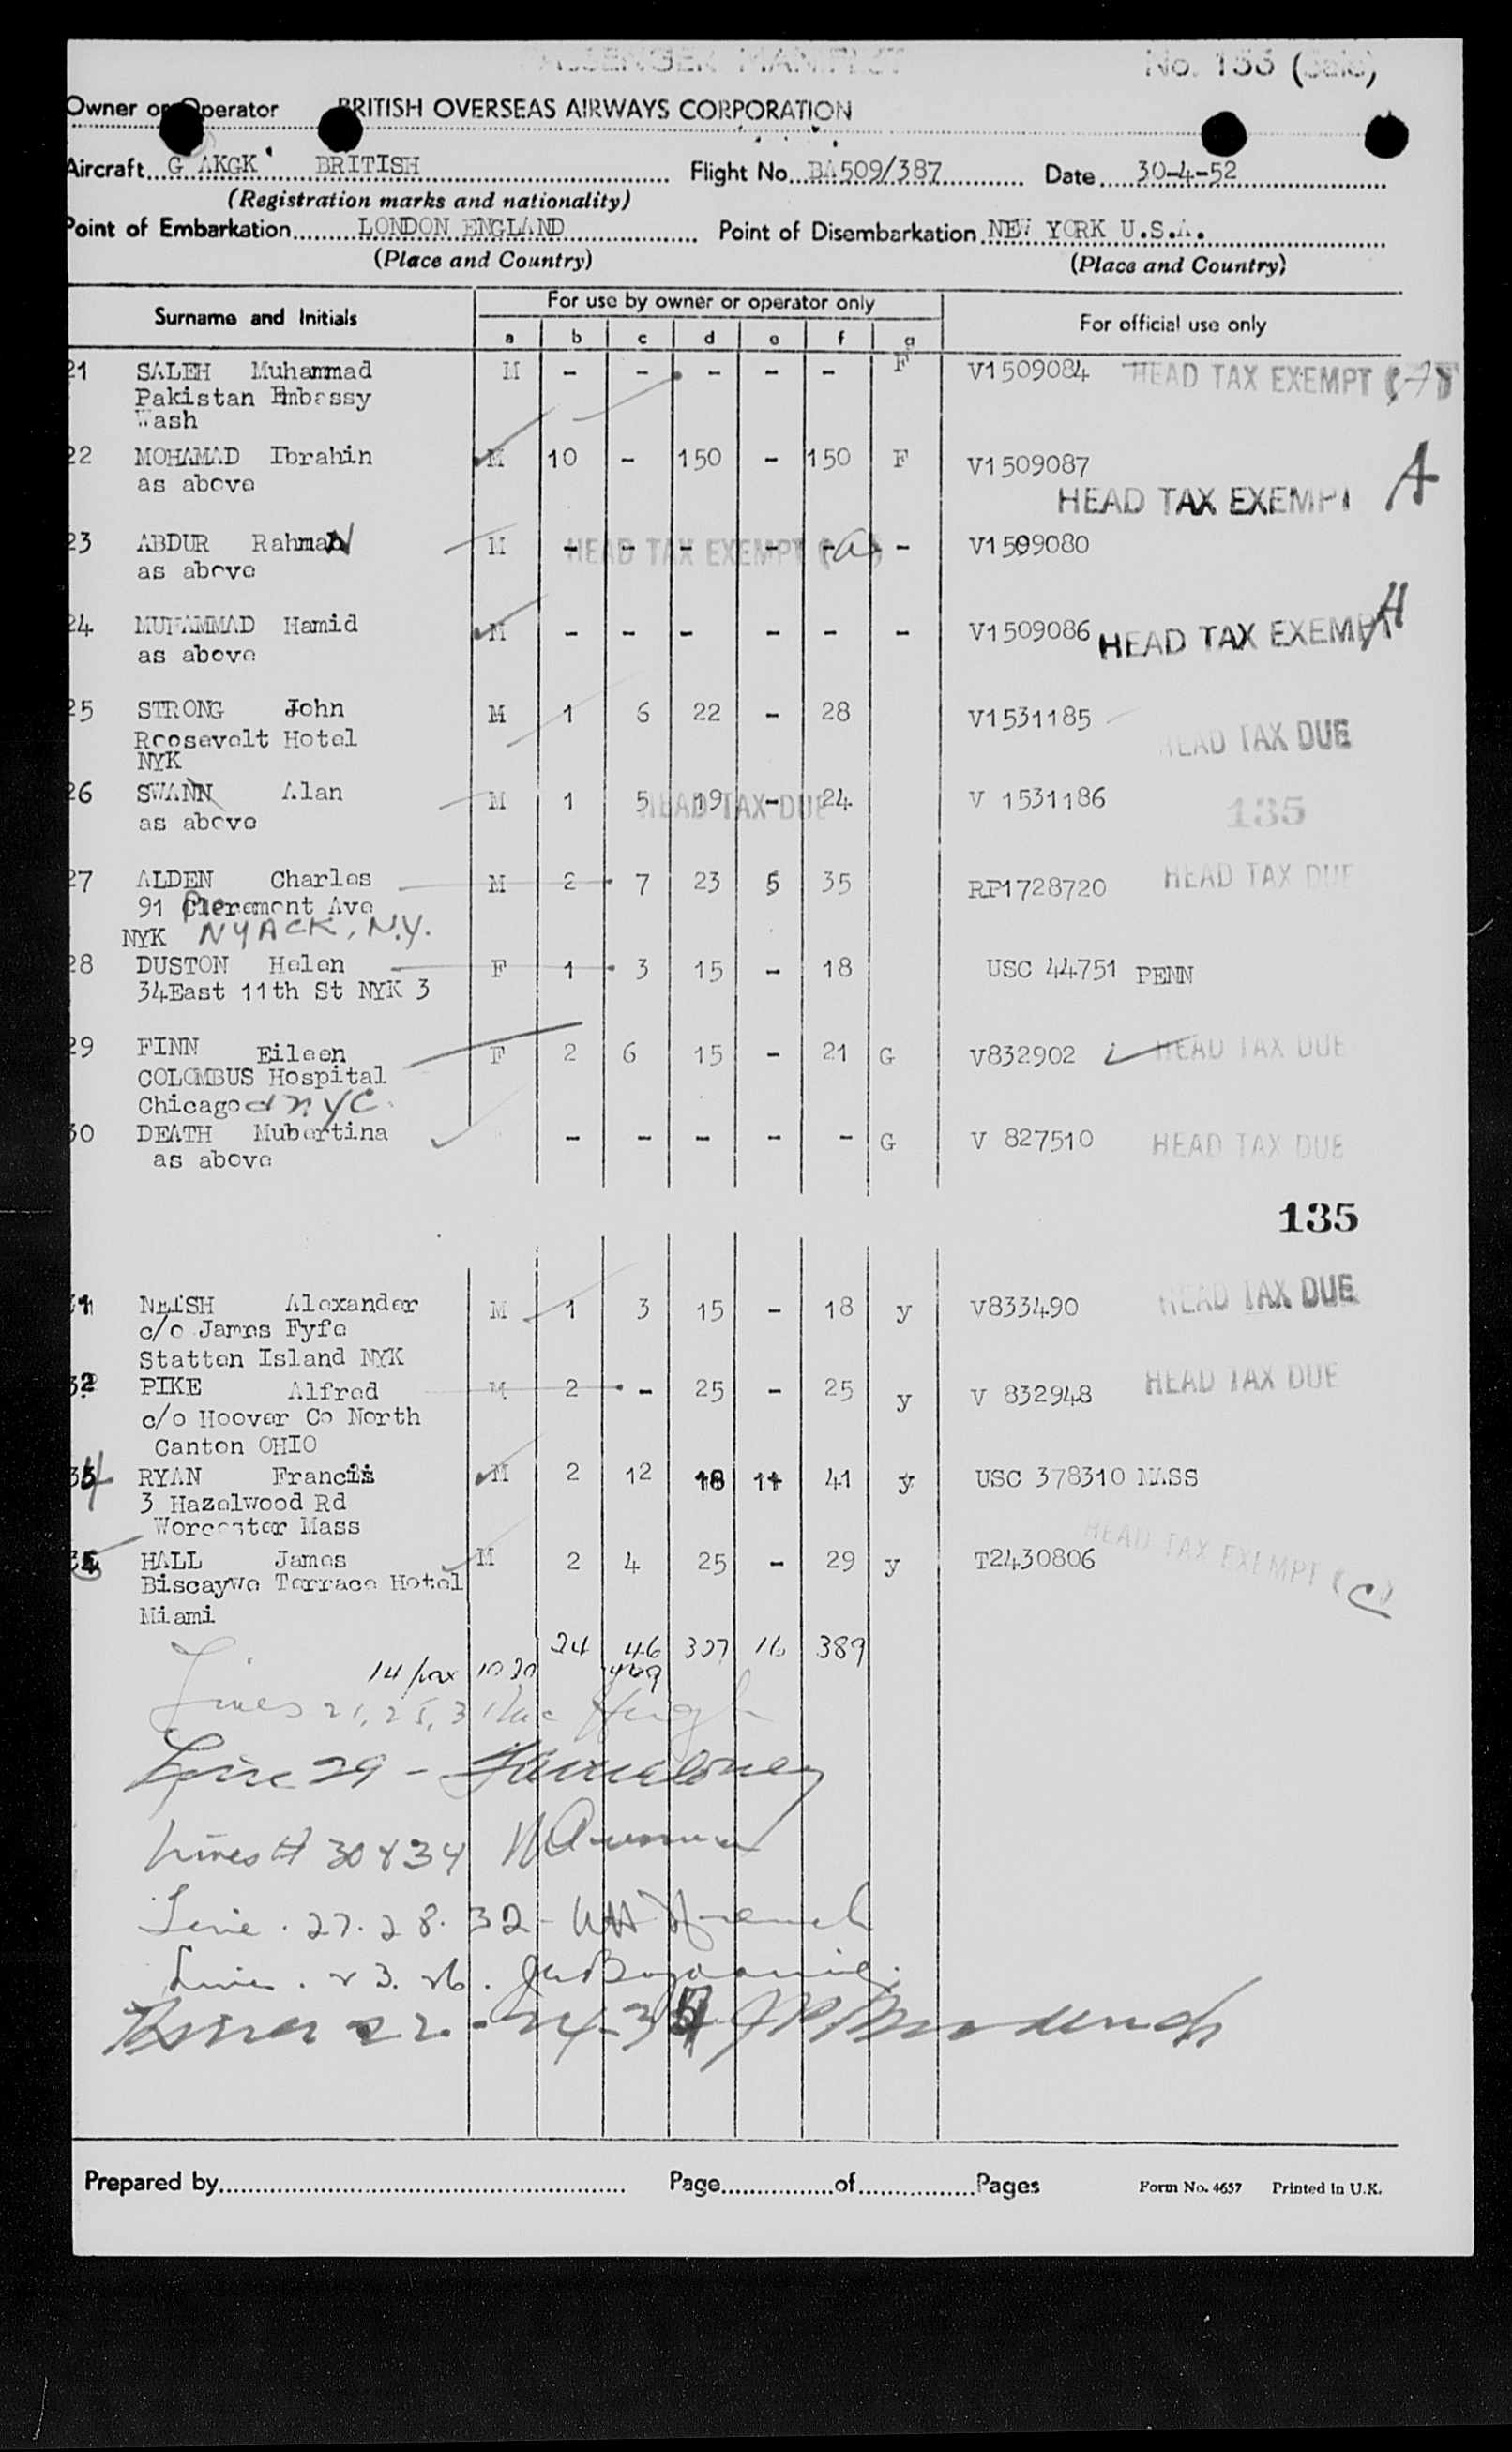 PASSENGER MANIFEST No. 133
Owner or Operator BRITISH OVERSEAS AIRWAYS CORPORATION
Aircraft G AKGK BRITISH Flight No. BA509/387 Date 30-4-52
(Registration marks and nationality)
Point of Embarkation LONDON ENGLAND Point of Disembarkation NEW YORK U.S.A.
(Place and Country) (Place and Country)
Surname and Initials For use by owner or operator only For official use only
a b c d e f g
21 SALEH Muhammad M - - - - - F V1509084 HEAD TAX EXEMPT
Pakistan Embassy
Wash
22 MOHAMAD Ibrahin M 10 - 150 - 150 F V1509087
as above HEAD TAX EXEMPT A
23 ABDUR Rahman M - - - - - - V1509080
HEAD TAX EXEMPT (a)
as above
24 MUHAMMAD Hamid M - - - - - - V1509086 HEAD TAX EXEMPT
as above
25 STRONG John M 1 6 22 - 28 V1531185
Roosevelt Hotel HEAD TAX DUE
NYK
26 SWANN Alan M 1 5 19 - 24 V 1531186
HEAD TAX DUE 135
as above
27 ALDEN Charles M 2 7 23 5 35 RP1728720 HEAD TAX DUE
91 Ave
NYK NYACK, N.Y.
28 DUSTON Helen F 1 3 15 - 18 USC 44751 PENN
34East 11th St NYK 3
29 FINN Eileen F 2 6 15 - 21 G V832902 HEAD TAX DUE
COLOMBUS Hospital
Chicago NYC
30 DEATH Mubertina - - - - - G V 827510 HEAD TAX DUE
as above
135
31 NEISH Alexander M 1 3 15 - 18 y V833490 HEAD TAX DUE
c/o James Fyfe
Statten Island NYK
32 PIKE Alfred M 2 - 25 - 25 y V 832948 HEAD TAX DUE
c/o Hoover Co North
Canton OHIO
34 RYAN Francis M 2 12 18 11 41 y USC 378310 MASS
3 Hazelwood Rd
Worcester Mass
HALL James M 2 4 25 - 29 y T2430806 HEAD TAX EXEMPT (C)
Biscaywe Terrace Hotel
Miami
24 46 327 16 389
14 pax 1020
Lines 21, 25, 31
Line 29 -
Lines # 30 & 34
Line . 27. 28. 32 -
Lines . 23. 26.
Lines 22 - 24 -
Prepared by Page of Pages Form No. 4657 Printed in U.K.